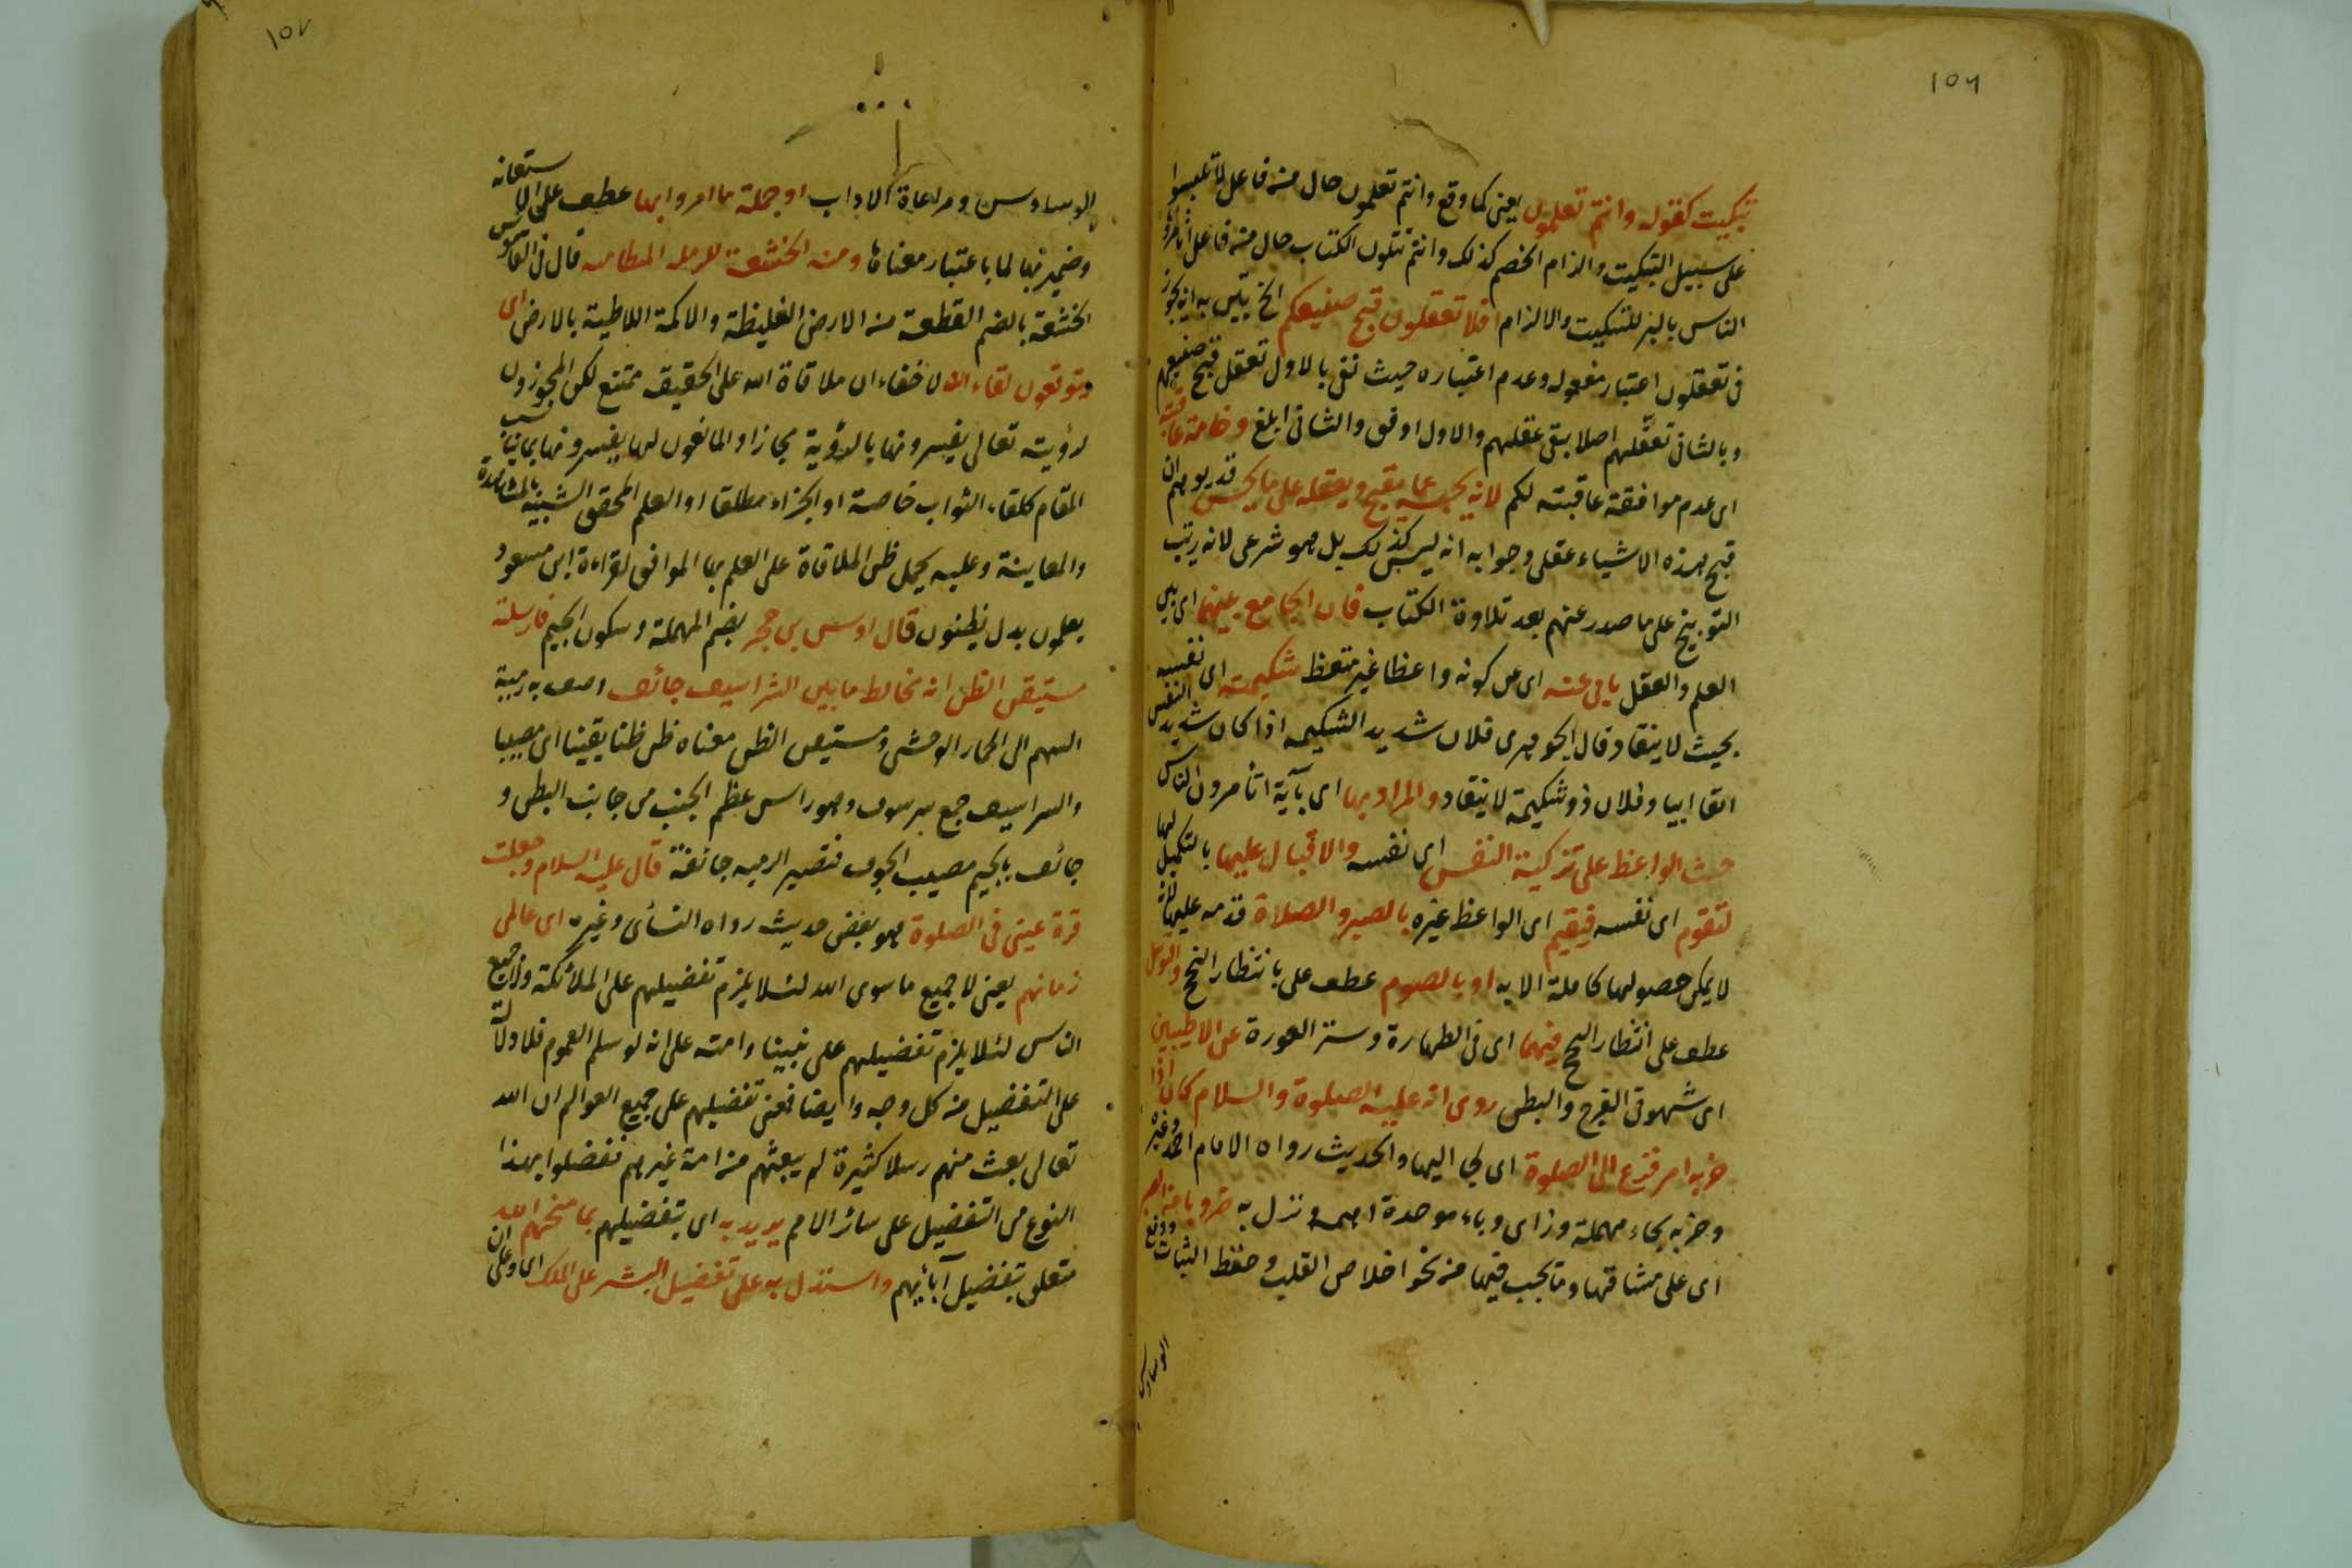 ١٥٦
تبكيت كقوله وانتم تعلمون يعنى كما وقع وانتم تعلمون حال من فاعل لا تلبسوا
على سبيل التبكيت والزام الخصم كذلك وانتم تتلون الكتاب حال من فاعل اتأمرون
الناس بالبر للتبكيت والالزام افلا تعقلون قبح صنيعكم الخ يتبين به انه يجوز
فى تعقلون اعتبار مفعوله وعدم اعتباره حيث نفى بالاول تعقل قبح صنيعهم
وبالثانى تعقلهم اصلا عقلهم والاول اوفق والثانى ابلغ وخامة عاقبته
اى عدم موافقة عاقبته لكم لانه يحبسه عما يقبح ويعقله على ما يحسن قد يوهم ان
قبح هذه الاشياء عقلى وجوابه انه ليس كذلك بل هو شرعى لانه رتب
التوبيخ على ما صدر عنهم بعد تلاوة الكتاب فان الجامع بينهما اى بين
العلم والعقل يأبى عنه اى عن كونه واعظا غير متعظ شكيمته اى نفسه
بحيث لا ينقاد قال الجوهرى فلان شديد الشكيمه اذا كان شديد النفس
انفا ابيا وفلان ذو شكيمة لا ينقاد والمراد بها اى بآية اتأمرون الناس
حث الواعظ على تزكية النفس اى نفسه والاقبال عليها بالتكميل لها
لتقوم اى نفسه فيقيم اى الواعظ غيره بالصبر والصلاة قدمه عليها لانه
لا يمكن حصولها كاملة الا به او بالصوم عطف على بانتظار النجح والتوسل
عطف على انتظار النجح فيهما اى فى الطهارة وستر العورة عن الاطيبين
اى شهوتى الفرج والبطن روى انه عليه الصلوة والسلام كان اذا
حزبه امر فزع الى الصلوة اى لجا اليها والحديث رواه الامام احمد وغيره
وحزبه بحاء مهملة وزاى وباء موحدة اهمه ونزل به ضروبا من الصبر
اى على مشاقها وما يجب فيها من نحو اخلاص القلب وحفظ النيات ودفع
الوساوس
١٥٧
الوساوس ومراعاة الاداب او جملة ما امروا بها عطف على الاستعانة
وضمير بها لما باعتبار معناها ومنه الخشعة للرملة المتطامنة قال فى القاموس
الخشعة بالضم القطعة من الارض الغليظة والاكمة اللاطية بالارض اى
يتوقعون لقاء الله لا خفاء ان ملاقاة الله على الحقيقة ممتنع لكن المجوزون
لرؤيته تعالى يفسرونها بالرؤية مجازا والمانعون لها يفسرونها بما يناسب
المقام كلقاء الثواب خاصة او الجزاء مطلقا او العلم المحقق الشبيه بالمشاهدة
والمعاينة وعليه يحمل ظن الملاقاة على العلم بها الموافق لقراءة ابن مسعود
يعلمون بدل يظنون قال اوس بن حجر بضم المهملة وسكون الجيم فارسلته
مستيقن الظن انه مخالط ما بين الشراسيف جائف وصف به رمية
السهم الى الحمار الوحشى ومستيقن الظن معناه ظن ظنا يقينا اى مصيبا
والشراسيف جمع شرسوف وهو راس عظم الجنب من جانب البطن و
جائف بالجيم مصيب الجوف فتصير الرميه جائفة قال عليه السلام وجعلت
قرة عينى فى الصلوة هو بعض حديث رواه النسائى وغيره اى عالمى
زمانهم يعنى لا جميع ما سوى الله لئلا يلزم تفضيلهم على الملائكة ولا جميع
الناس لئلا يلزم تفضيلهم على نبينا وامته على انه لو سلم العموم فلا دلالة
على التفضيل من كل وجه وايضا فمعنى تفضيلهم على جميع العوالم ان الله
تعالى بعث منهم رسلا كثيرة لم يبعثهم من امة غيرهم ففضلوا بهذا
النوع من التفضيل على سائر الامم يريد به اى بتفضيلهم بما منحهم الله
متعلق بتفضيل آبائهم واستدل به على تفضيل البشر على الملك اى وعلى ان